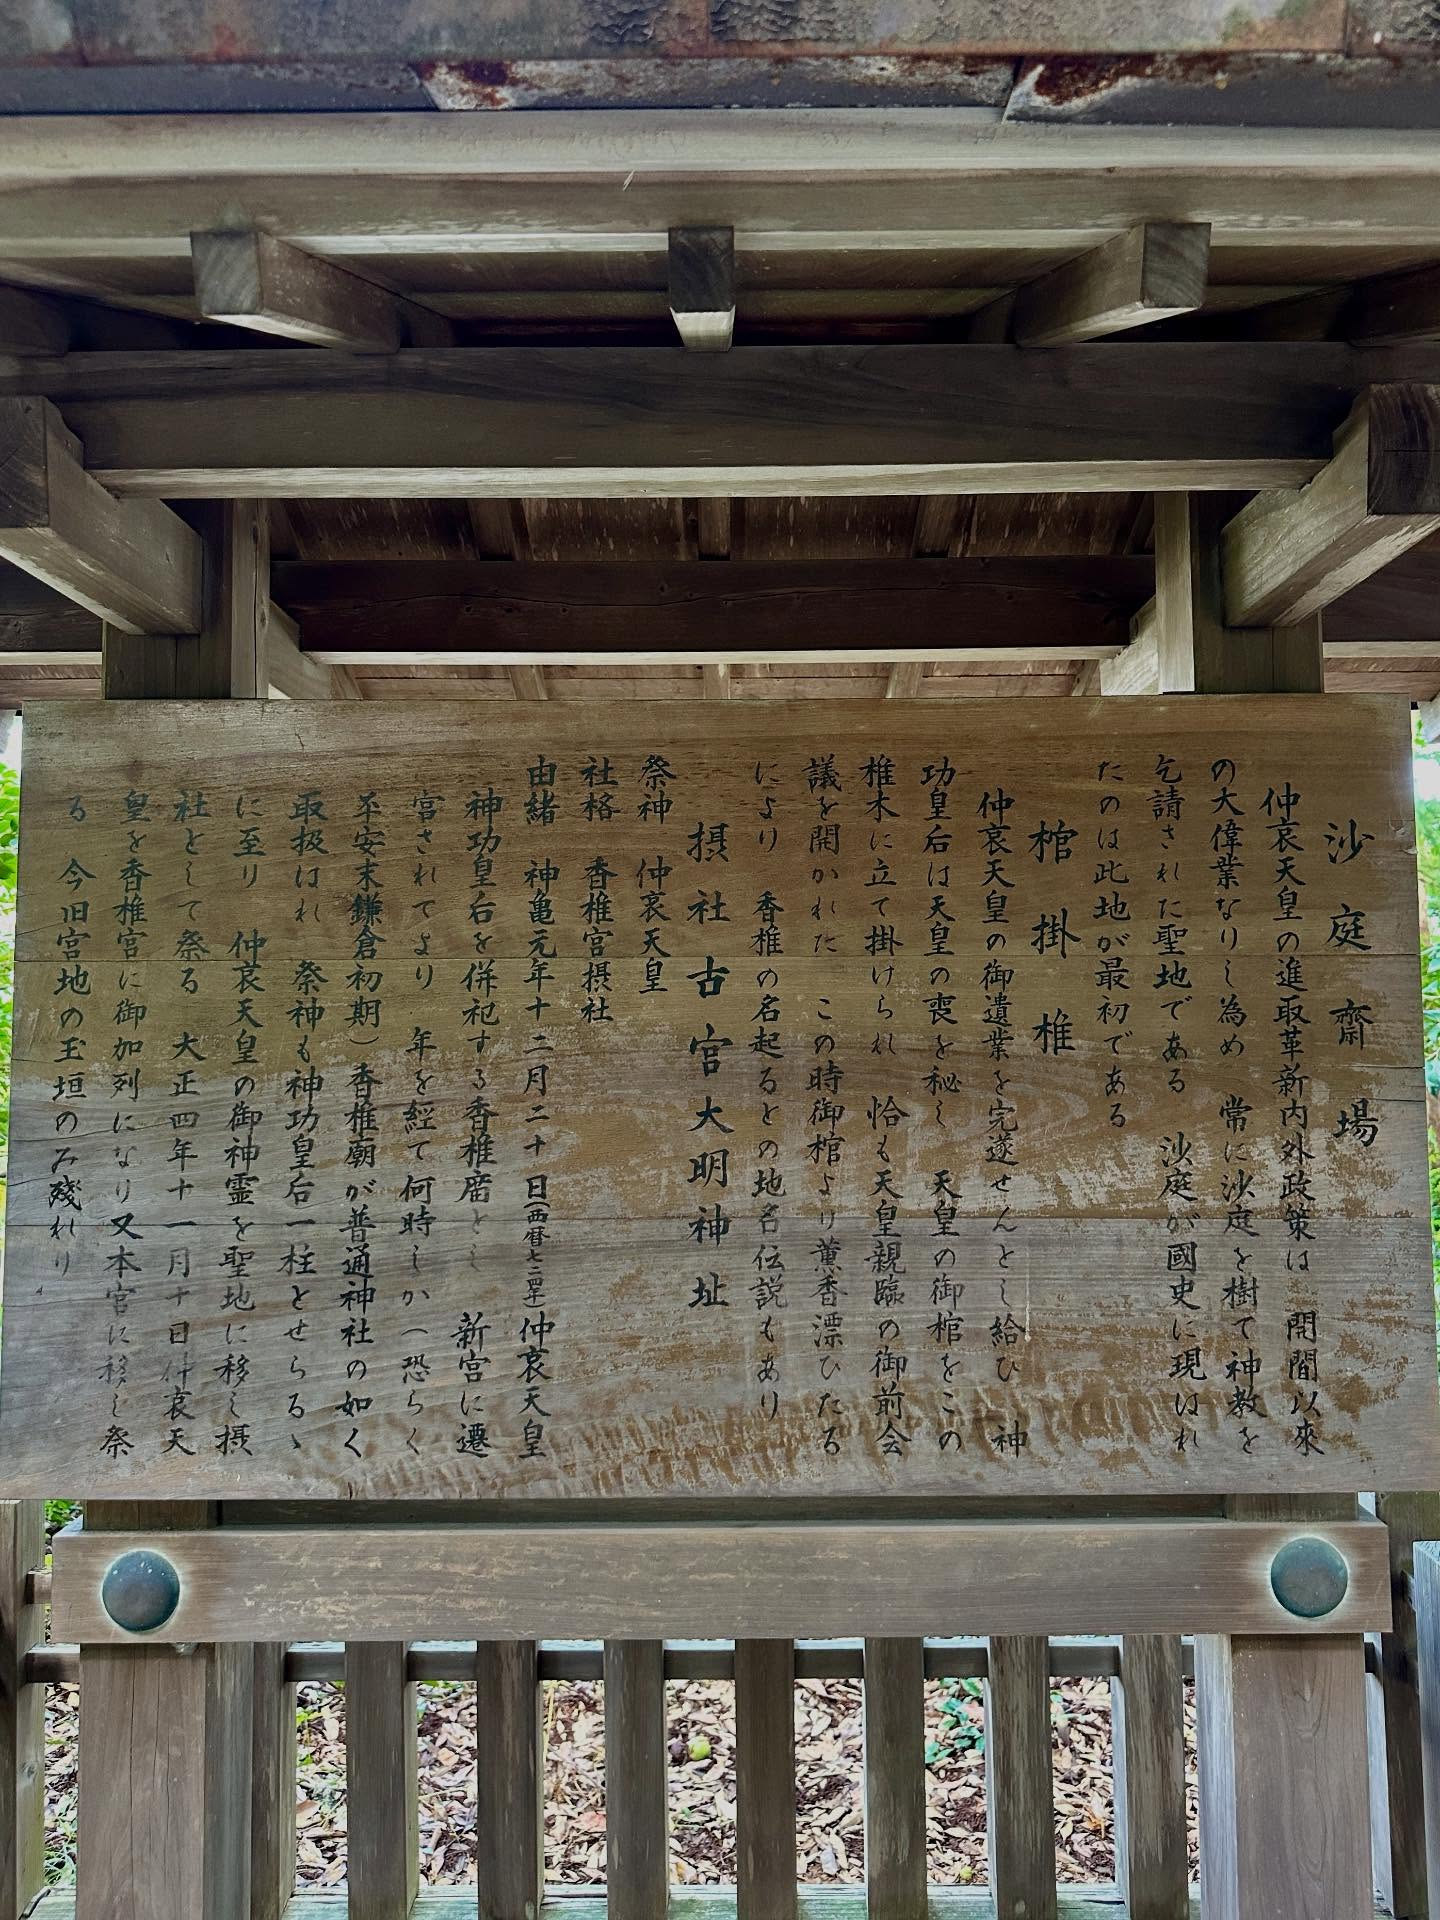 沙庭齋場
仲哀天皇の進取革新内外政策は　開闢以來
の大偉業なりし為め　常に沙庭を樹て神教を
乞請された聖地である　沙庭が國史に現はれ
たのは此地が最初である
棺掛椎
仲哀天皇の御遺業を完遂せんとし給ひ　神
功皇后は天皇の喪を秘し　天皇の御棺をこの
椎木に立て掛けられ　恰も天皇親臨の御前会
議を開かれた　この時御棺より薫香漂ひたる
により　香椎の名起るとの地名伝説もあり
摂社古宮大明神址
祭神　仲哀天皇
社格　香椎宮摂社
由緒　神亀元年十二月二十日(西暦七二四年)仲哀天皇
神功皇后を併祀する香椎廟とし　新宮に遷
宮されてより　年を経て何時しか（恐らく
平安末鎌倉初期）香椎廟が普通神社の如く
取扱はれ　祭神も神功皇后一柱とせらるゝ
に至り　仲哀天皇の御神霊を聖地に移し摂
社として祭る　大正四年十一月十日仲哀天
皇を香椎宮に御加列になり又本宮に移し祭
る　今旧宮地の玉垣のみ残れり